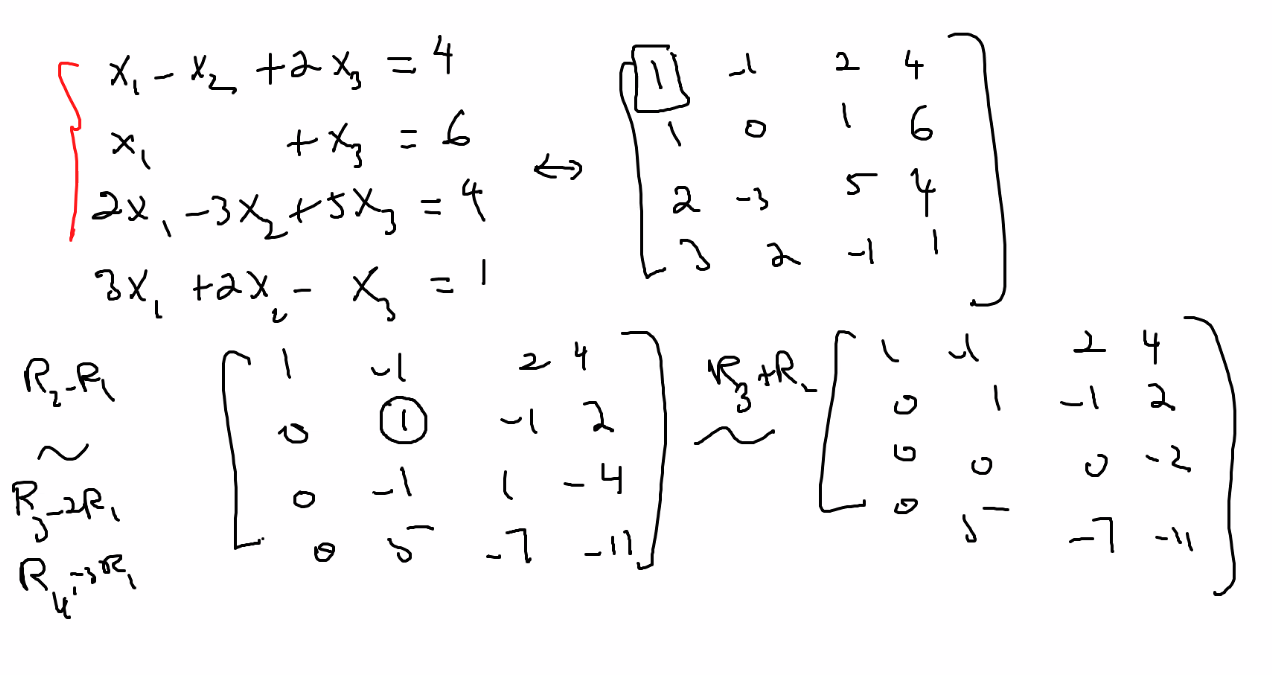 x₁ - x₂ + 2x₃ = 4
x₁ + x₃ = 6
2x₁ - 3x₂ + 5x₃ = 4
3x₁ + 2x₂ - x₃ = 1
↔
1 -1 2 4
1 0 1 6
2 -3 5 4
3 2 -1 1
R₂-R₁
~
R₃-2R₁
R₄-3R₁
1 -1 2 4
0 1 -1 2
0 -1 1 -4
0 5 -7 -11
R₃+R₂
~
1 -1 2 4
0 1 -1 2
0 0 0 -2
0 5 -7 -11